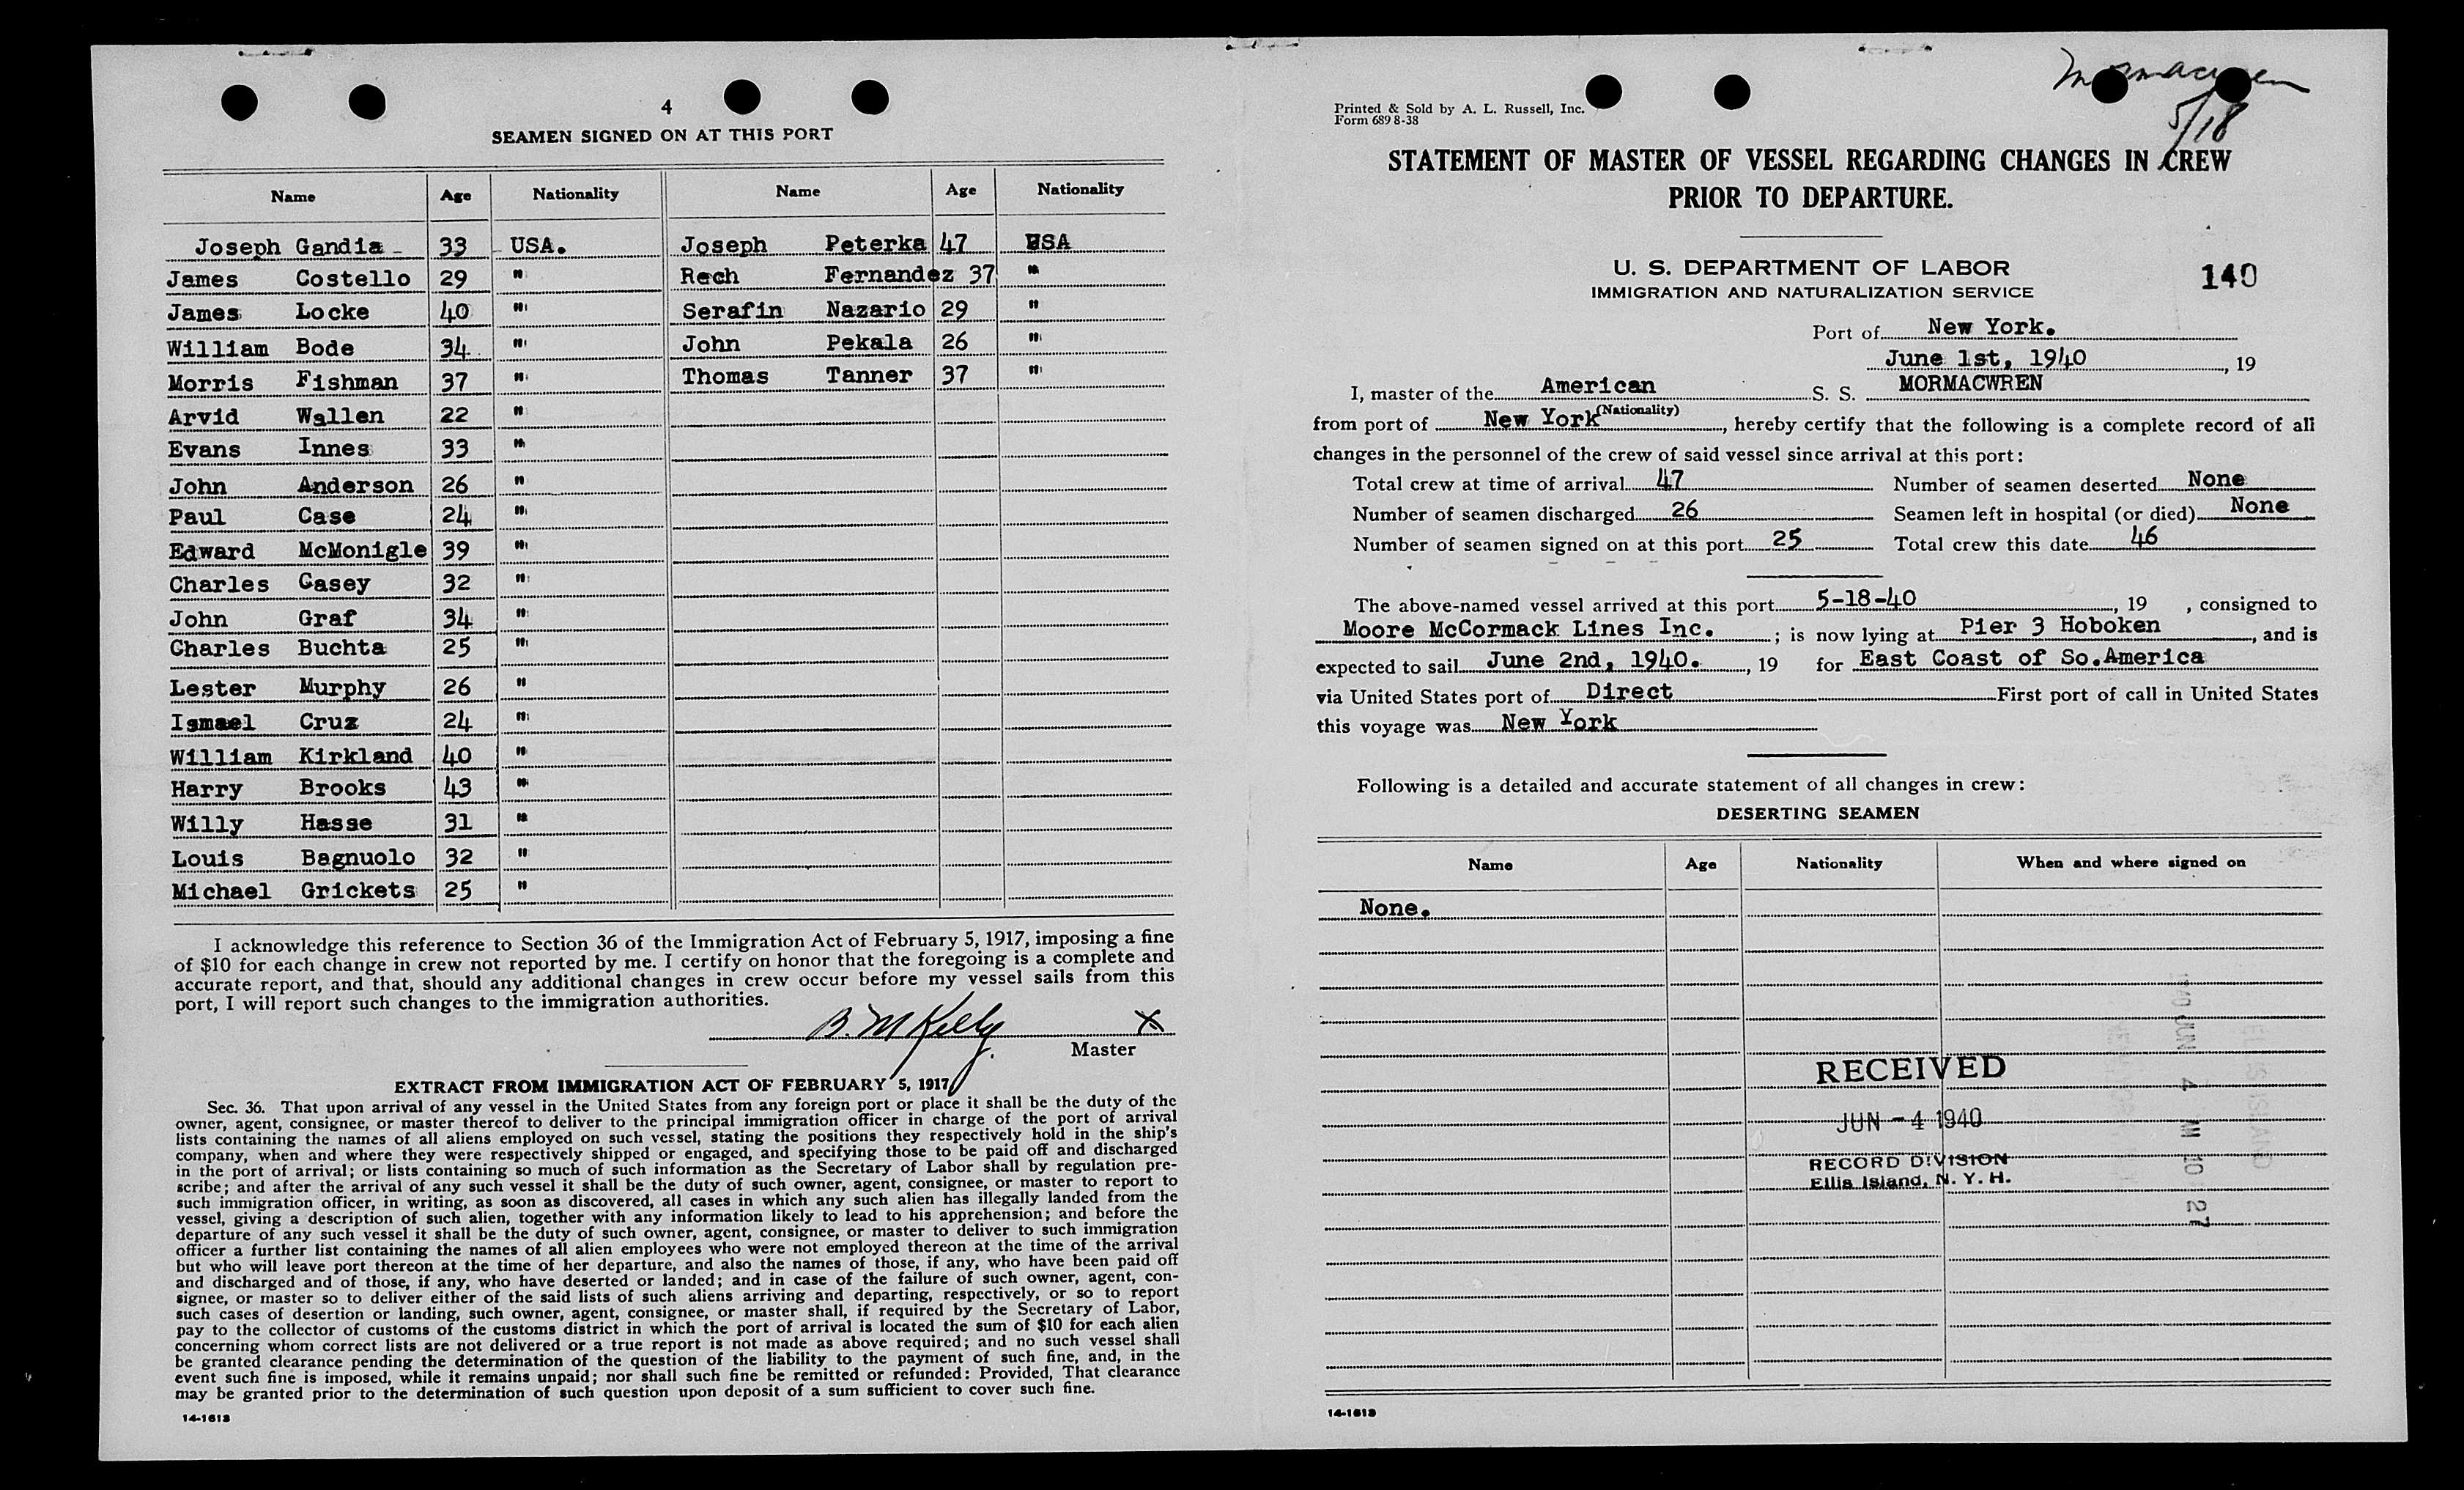 4
SEAMEN SIGNED ON AT THIS PORT
Name Age Nationality Name Age Nationality
Joseph Gandia 33 USA. Joseph Peterka 47 USA
James Costello 29 " Rech Fernandez 37 "
James Locke 40 " Serafin Nazario 29 "
William Bode 34 " John Pekala 26 "
Morris Fishman 37 " Thomas Tanner 37 "
Arvid Wallen 22 "
Evans Innes 33 "
John Anderson 26 "
Paul Case 24 "
Edward McMonigle 39 "
Charles Casey 32 "
John Graf 34 "
Charles Buchta 25 "
Lester Murphy 26 "
Ismael Cruz 24 "
William Kirkland 40 "
Harry Brooks 43 "
Willy Hasse 31 "
Louis Bagnuolo 32 "
Michael Grickets 25 "
I acknowledge this reference to Section 36 of the Immigration Act of February 5, 1917, imposing a fine
of $10 for each change in crew not reported by me. I certify on honor that the foregoing is a complete and
accurate report, and that, should any additional changes in crew occur before my vessel sails from this
port, I will report such changes to the immigration authorities.
B. M Kelly X
Master
EXTRACT FROM IMMIGRATION ACT OF FEBRUARY 5, 1917
Sec. 36. That upon arrival of any vessel in the United States from any foreign port or place it shall be the duty of the
owner, agent, consignee, or master thereof to deliver to the principal immigration officer in charge of the port of arrival
lists containing the names of all aliens employed on such vessel, stating the positions they respectively hold in the ship's
company, when and where they were respectively shipped or engaged, and specifying those to be paid off and discharged
in the port of arrival; or lists containing so much of such information as the Secretary of Labor shall by regulation pre-
scribe; and after the arrival of any such vessel it shall be the duty of such owner, agent, consignee, or master to report to
such immigration officer, in writing, as soon as discovered, all cases in which any such alien has illegally landed from the
vessel, giving a description of such alien, together with any information likely to lead to his apprehension; and before the
departure of any such vessel it shall be the duty of such owner, agent, consignee, or master to deliver to such immigration
officer a further list containing the names of all alien employees who were not employed thereon at the time of the arrival
but who will leave port thereon at the time of her departure, and also the names of those, if any, who have been paid off
and discharged and of those, if any, who have deserted or landed; and in case of the failure of such owner, agent, con-
signee, or master so to deliver either of the said lists of such aliens arriving and departing, respectively, or so to report
such cases of desertion or landing, such owner, agent, consignee, or master shall, if required by the Secretary of Labor,
pay to the collector of customs of the customs district in which the port of arrival is located the sum of $10 for each alien
concerning whom correct lists are not delivered or a true report is not made as above required; and no such vessel shall
be granted clearance pending the determination of the question of the liability to the payment of such fine, and, in the
event such fine is imposed, while it remains unpaid; nor shall such fine be remitted or refunded: Provided, That clearance
may be granted prior to the determination of such question upon deposit of a sum sufficient to cover such fine.
14-1613
Mormacwren
5/18
Printed & Sold by A. L. Russell, Inc.
Form 689 8-38
STATEMENT OF MASTER OF VESSEL REGARDING CHANGES IN CREW
PRIOR TO DEPARTURE.
U. S. DEPARTMENT OF LABOR
IMMIGRATION AND NATURALIZATION SERVICE
140
Port of New York.
June 1st, 1940, 19
I, master of the American S. S. MORMACWREN
(Nationality)
from port of New York, hereby certify that the following is a complete record of all
changes in the personnel of the crew of said vessel since arrival at this port:
Total crew at time of arrival 47 Number of seamen deserted None
Number of seamen discharged 26 Seamen left in hospital (or died) None
Number of seamen signed on at this port 25 Total crew this date 46
The above-named vessel arrived at this port 5-18-40, 19 , consigned to
Moore McCormack Lines Inc. ; is now lying at Pier 3 Hoboken, and is
expected to sail June 2nd, 1940., 19 for East Coast of So.America
via United States port of Direct First port of call in United States
this voyage was New York
Following is a detailed and accurate statement of all changes in crew:
DESERTING SEAMEN
Name Age Nationality When and where signed on
None.
RECEIVED
JUN - 4 1940
RECORD DIVISION
Ellis Island, N. Y. H.
14-1613